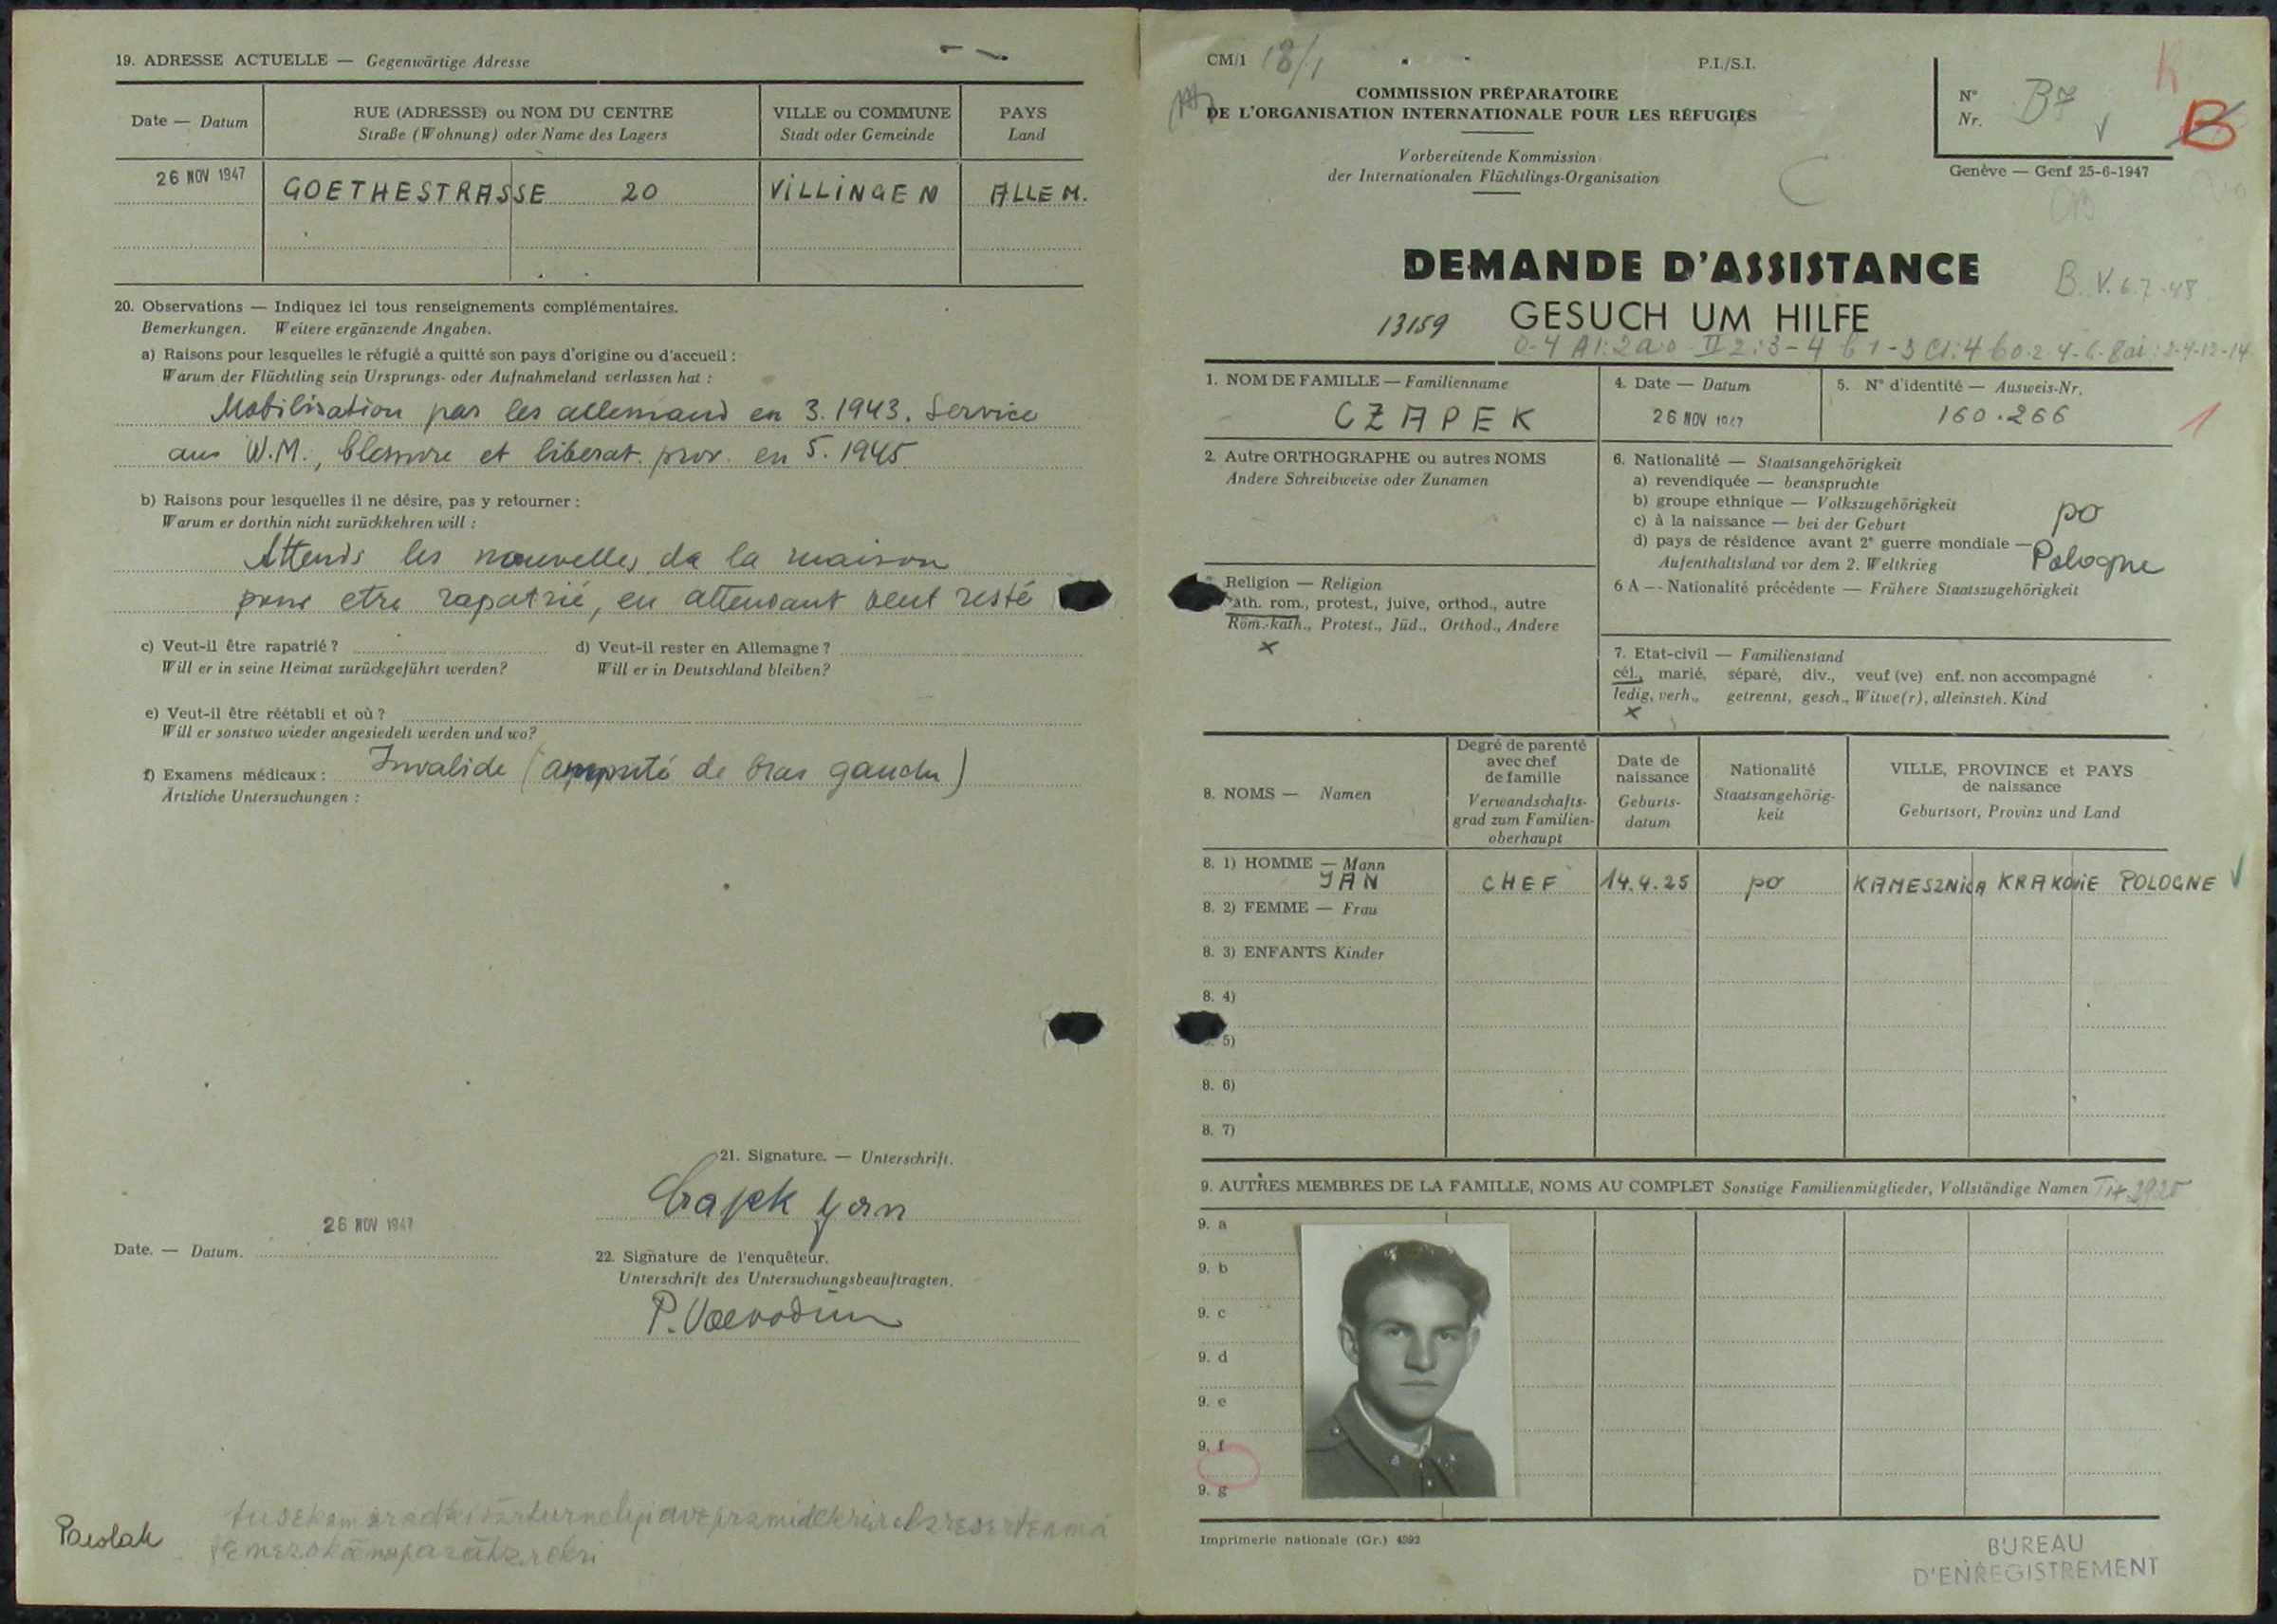 19. ADRESSE ACTUELLE — Gegenwärtige Adresse
Date — Datum
RUE (ADRESSE) ou NOM DU CENTRE
Straße (Wohnung) oder Name des Lagers
VILLE ou COMMUNE
Stadt oder Gemeinde
PAYS
Land
26 NOV 1947
GOETHESTRASSE 20
VILLINGEN
ALLEM.
20. Observations — Indiquez ici tous renseignements complémentaires.
Bemerkungen. Weitere ergänzende Angaben.
a) Raisons pour lesquelles le réfugié a quitté son pays d'origine ou d'accueil :
Warum der Flüchtling sein Ursprungs- oder Aufnahmeland verlassen hat :
Mobilisation par les allemand en 3.1943. Service
aus W.M., blessure et liberat. prov. en 5.1945
b) Raisons pour lesquelles il ne désire, pas y retourner :
Warum er dorthin nicht zurückkehren will :
Attends les nouvelles de la maison
pour etre rapatrié, en attendant veut resté
c) Veut-il être rapatrié ?
Will er in seine Heimat zurückgeführt werden?
d) Veut-il rester en Allemagne ?
Will er in Deutschland bleiben?
e) Veut-il être réétabli et où ?
Will er sonstwo wieder angesiedelt werden und wo?
f) Examens médicaux : Invalide (amputé de bras gauche)
Ärtzliche Untersuchungen :
21. Signature. — Unterschrift.
Czapek Jan
26 NOV 1947
Date. — Datum.
22. Signature de l'enquêteur.
Unterschrift des Untersuchungsbeauftragten.
P. Voevodin
CM/1 18/1
P.I./S.I.
COMMISSION PRÉPARATOIRE
DE L'ORGANISATION INTERNATIONALE POUR LES RÉFUGIÉS
Vorbereitende Kommission
der Internationalen Flüchtlings-Organisation
N°
Nr.
B7
K
B
Genève — Genf 25-6-1947
DEMANDE D'ASSISTANCE
B. V. 6.7.48
GESUCH UM HILFE
13159
1. NOM DE FAMILLE — Familienname
CZAPEK
4. Date — Datum
26 NOV 1947
5. N° d'identité — Ausweis-Nr.
160.266
1
2. Autre ORTHOGRAPHE ou autres NOMS
Andere Schreibweise oder Zunamen
6. Nationalité — Staatsangehörigkeit
a) revendiquée — beanspruchte
b) groupe ethnique — Volkszugehörigkeit
c) à la naissance — bei der Geburt
po
d) pays de résidence avant 2e guerre mondiale —
Aufenthaltsland vor dem 2. Weltkrieg
Pologne
6 A — Nationalité précédente — Frühere Staatszugehörigkeit
Religion — Religion
ath. rom., protest., juive, orthod., autre
Röm.-kath., Protest., Jüd., Orthod., Andere
x
7. Etat-civil — Familienstand
cél., marié, séparé, div., veuf (ve) enf. non accompagné
ledig, verh., getrennt, gesch., Witwe(r), alleinsteh. Kind
x
8. NOMS — Namen
Degré de parenté
avec chef
de famille
Verwandschafts-
grad zum Familien-
oberhaupt
Date de
naissance
Geburts-
datum
Nationalité
Staatsangehörig-
keit
VILLE, PROVINCE et PAYS
de naissance
Geburtsort, Provinz und Land
8. 1) HOMME — Mann
JAN
CHEF
14.4.25
po
KAMESZNICA KRAKOVIE POLOGNE
8. 2) FEMME — Frau
8. 3) ENFANTS Kinder
8. 4)
5)
8. 6)
8. 7)
9. AUTRES MEMBRES DE LA FAMILLE, NOMS AU COMPLET Sonstige Familienmitglieder, Vollständige Namen
9. a
9. b
9. c
9. d
9. e
9. f
9. g
Imprimerie nationale (Gr.) 4392
BUREAU
D'ENREGISTREMENT